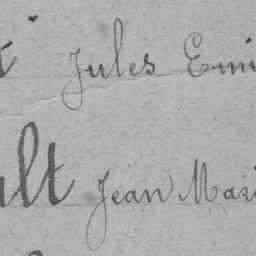 Jules Emi
ult Jean Mari